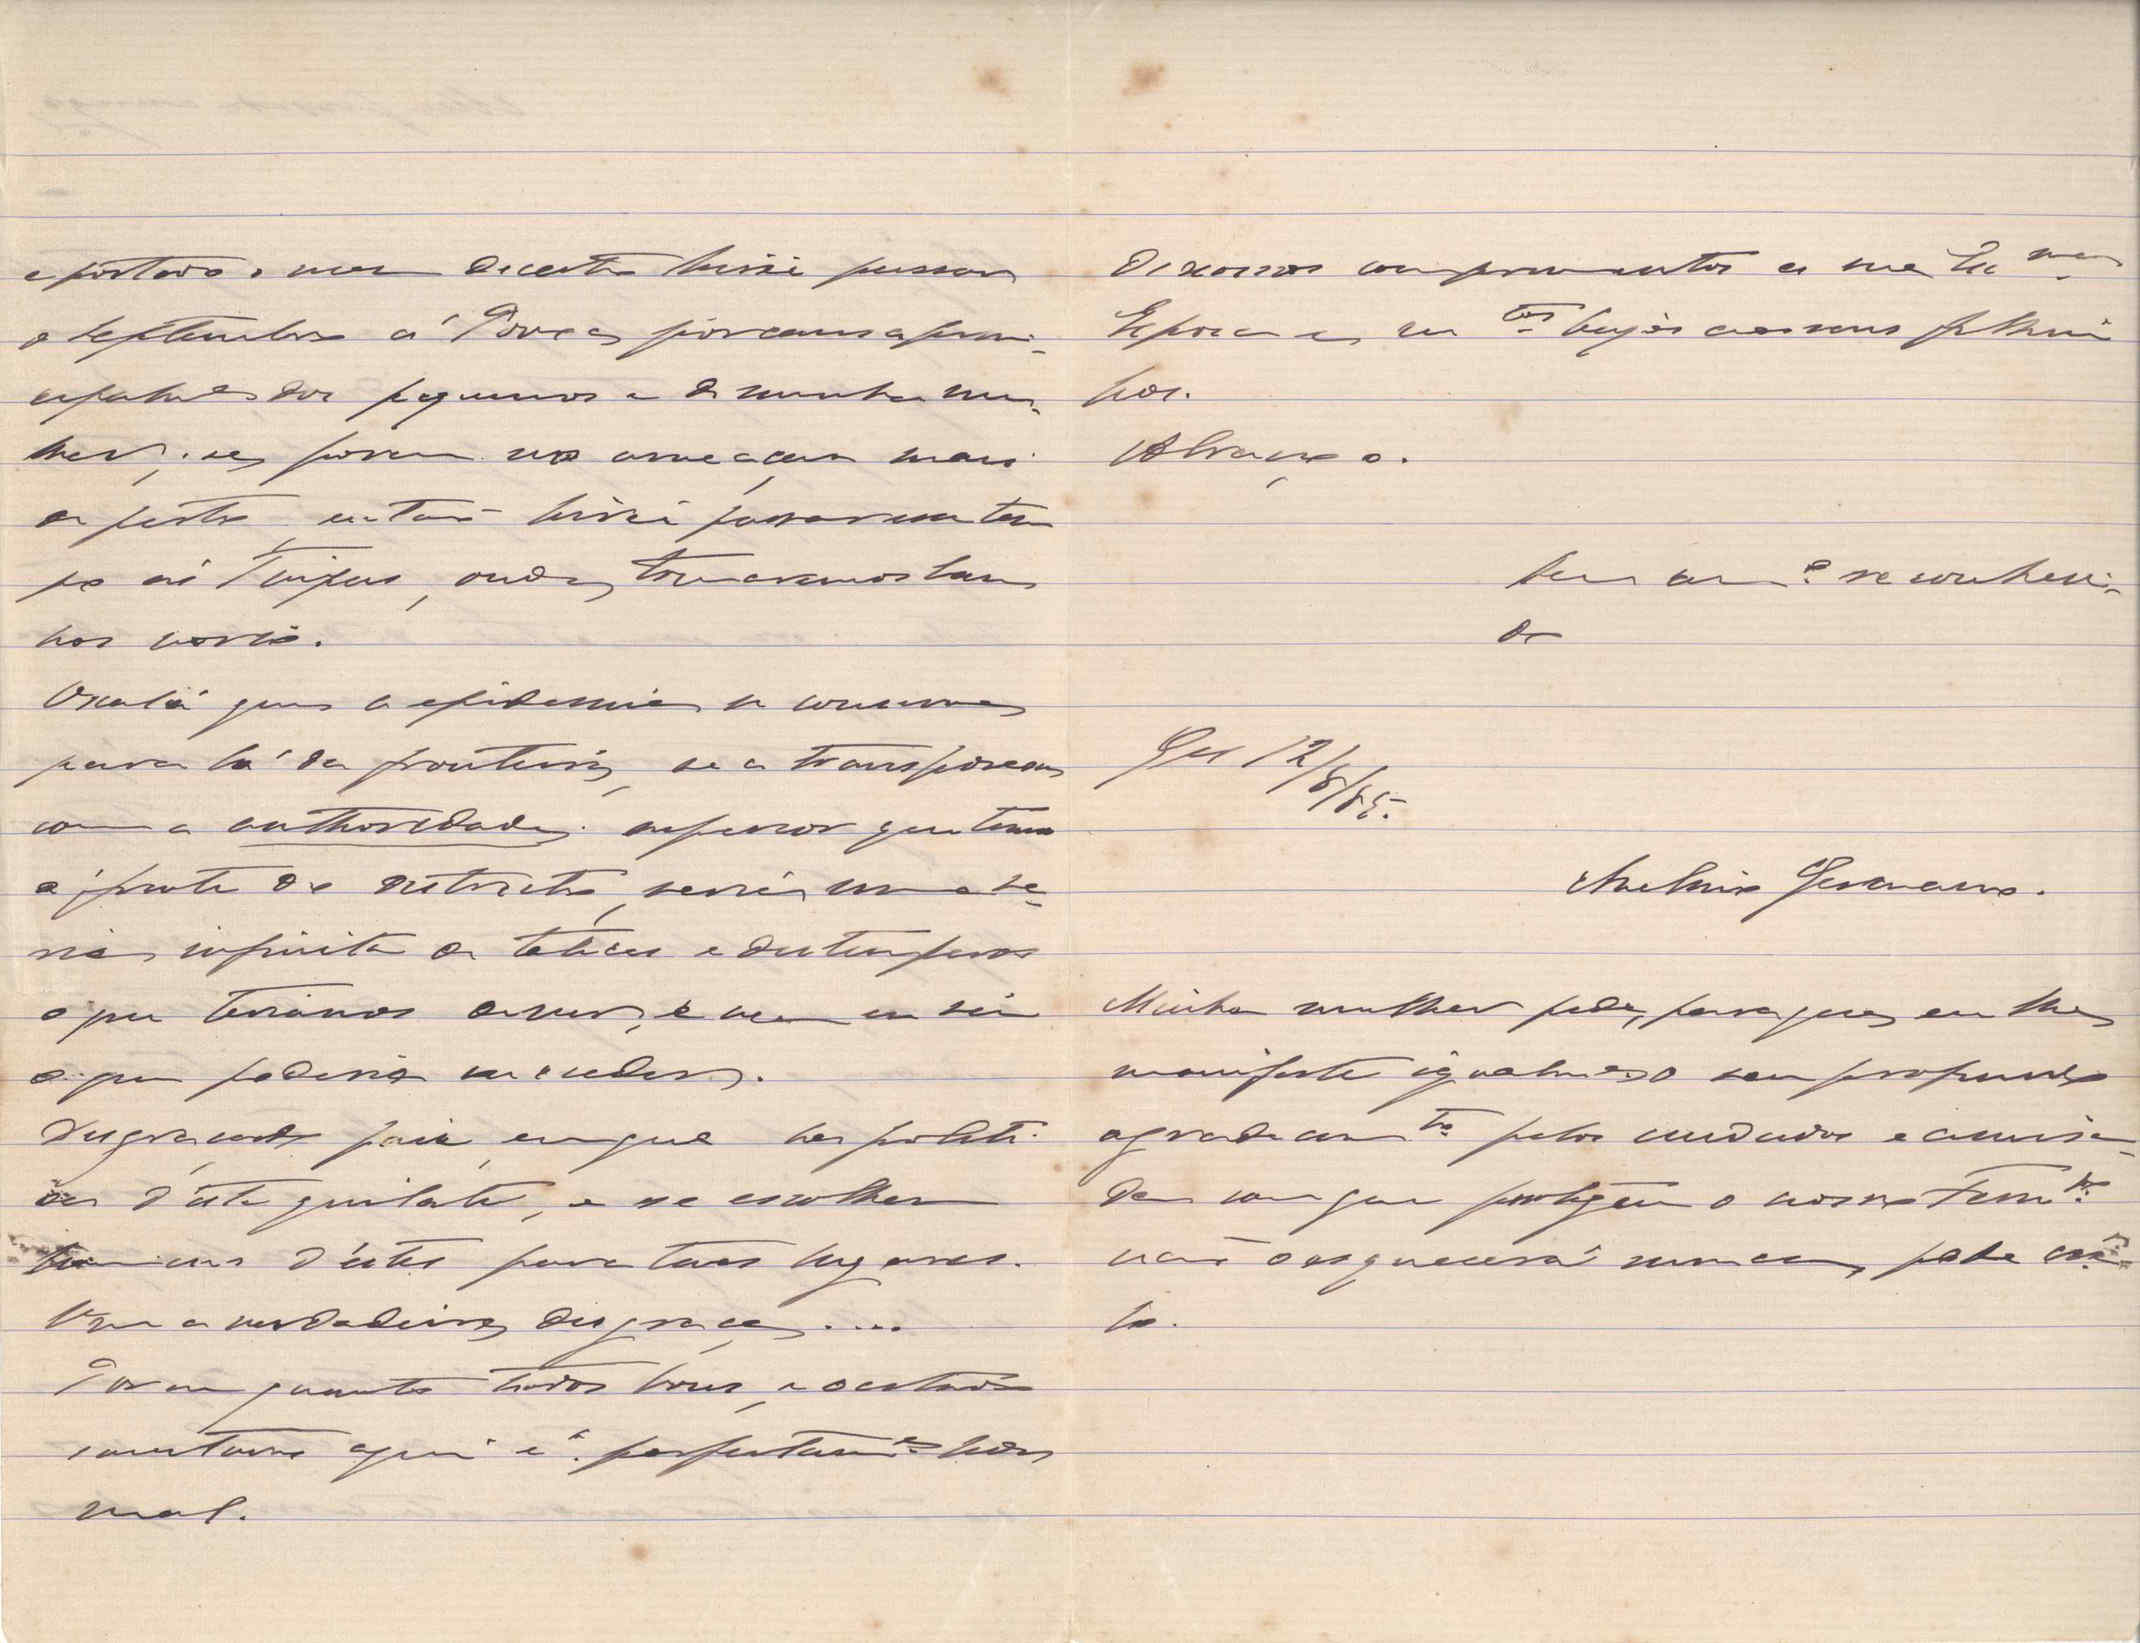 a portaro, mas decerto hirei passar
o Septembro á Povoa, por causa princi-
cipalm.e dos pequenos e de minha mu-
lher; se, porem nos ameaçar mais
a peste, então hirei passar um tem
po ás Taipas, onde, tomaremos ba
nhos
Oxalá que a epidemia se conserve
para lá da fronteira, se a transpozesse
com a authoridade superior que temos
á frente do districto, seria uma se-
rie infinita de tolices e destemperos
o que teriamos a ver, e nem eu sei
o que poderia succeder.
Desgraçado paiz, em que ha politi
cos d'este quilate, e se escolhem
d'estes para taes lugares.
Uma verdadeira desgraça....
Por em quanto todos bons, e o estado
sanitario aqui é perfeitam.e nor
mal.
De nossos comprimentos a sua Ex.ma
Espoza e, m.tos beijos aos seus filhi
nhos.
Abraça o.
Seu am.o reconheci-
do
Gs 12/8/85.
Avelino Germano.
Minha mulher pede, para que, eu lhe
manifeste igualm.e o seu profundo
agradecim.to pelos cuidados e amisa-
de com que protegeu o nosso
não o esquecerá nunca, pode crê-
lo.